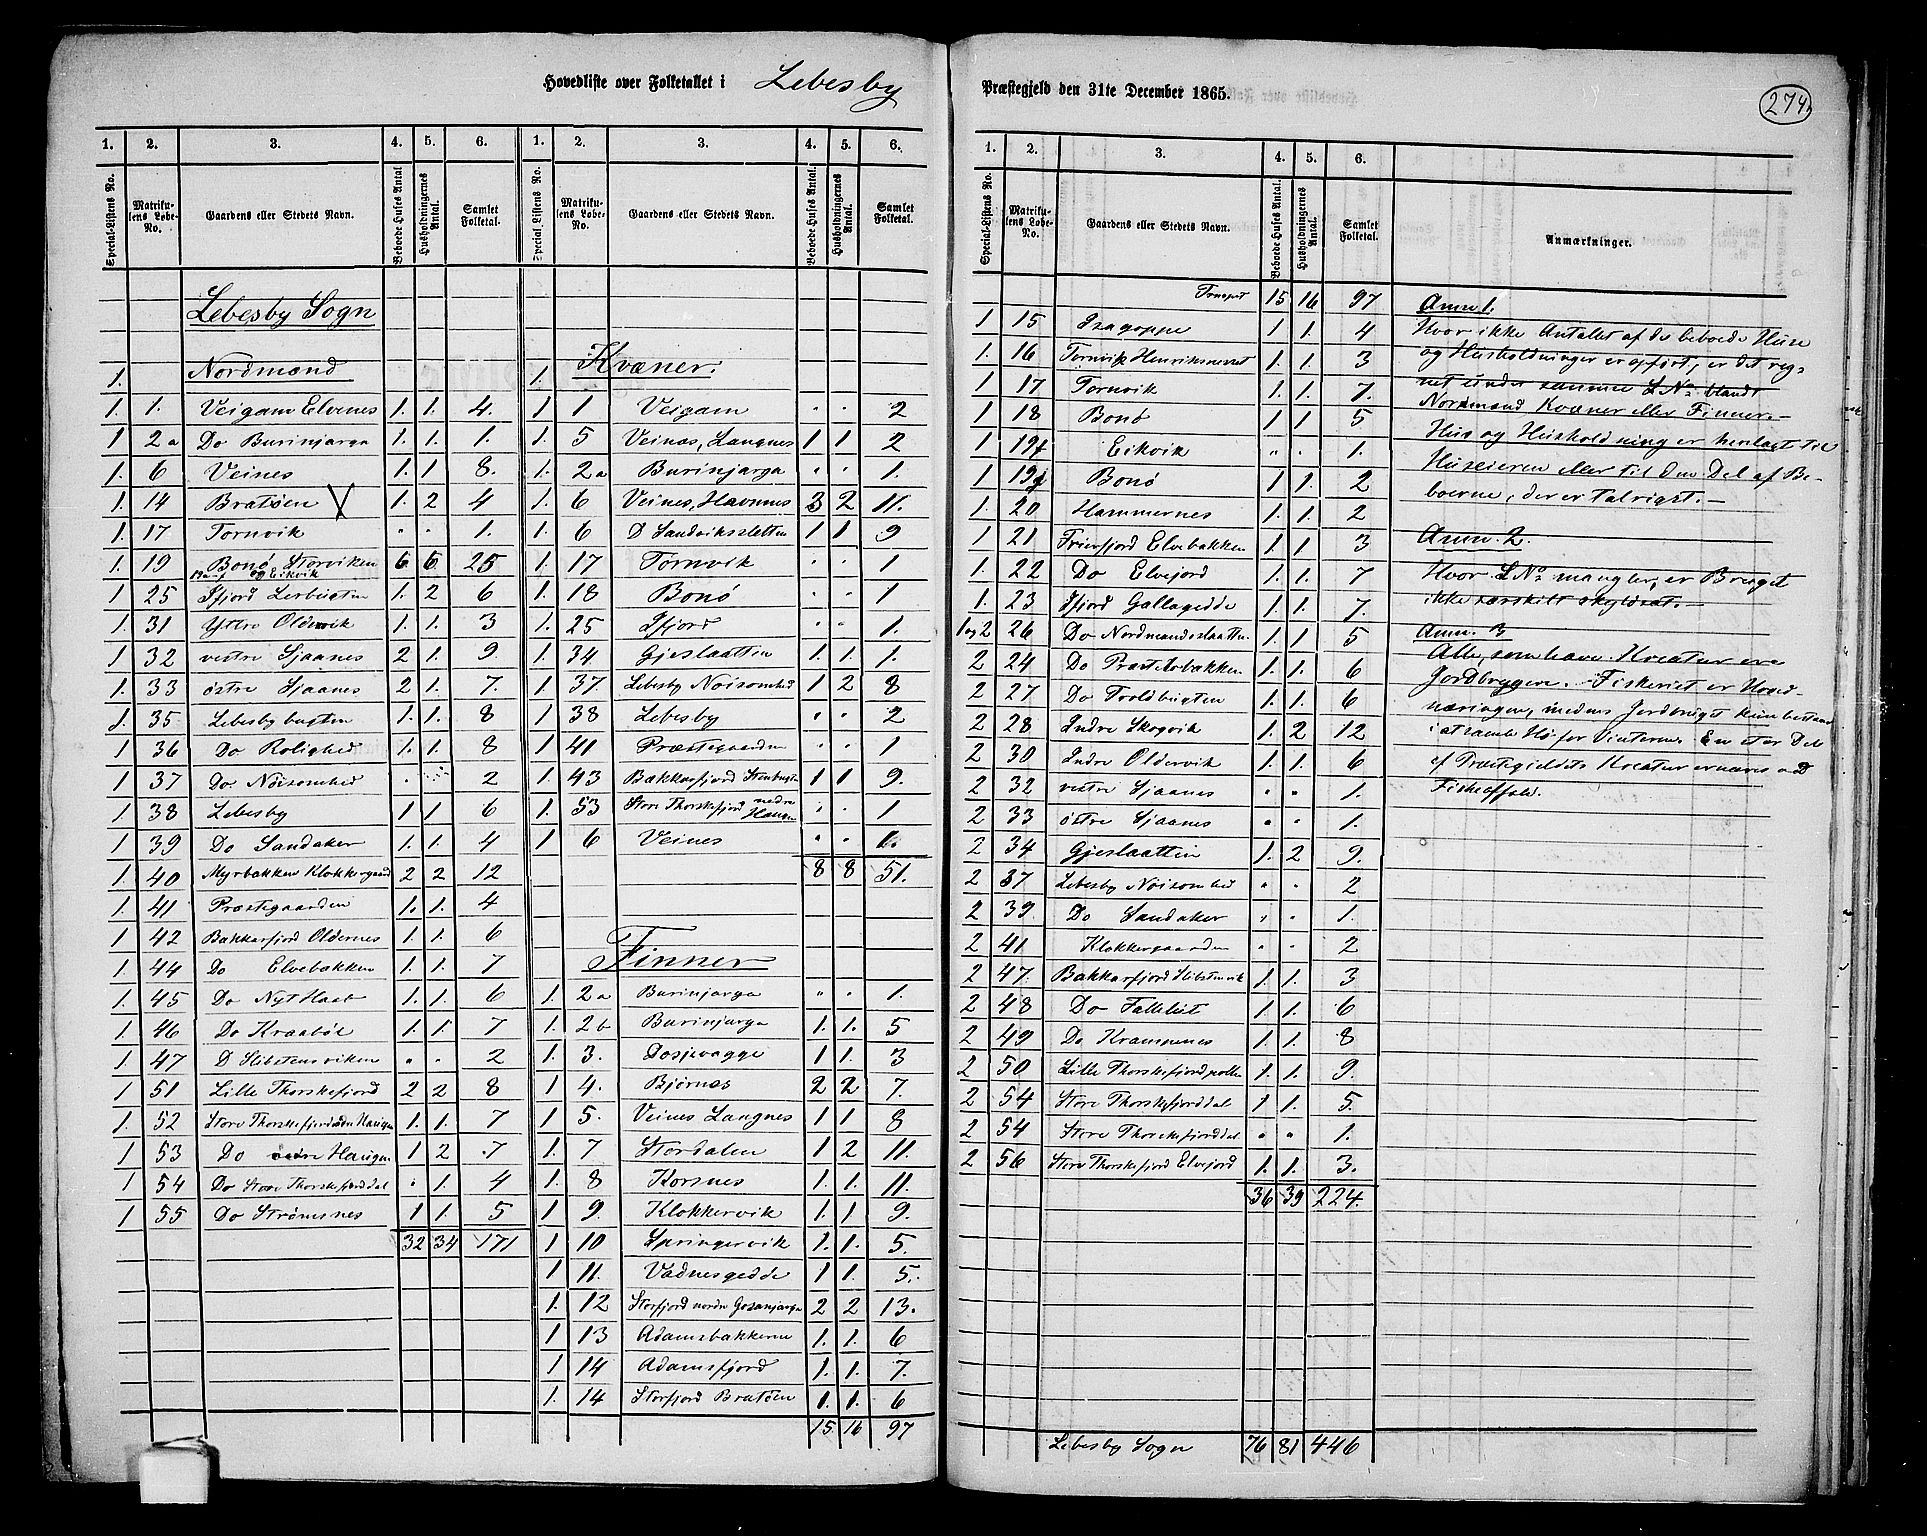 Hovedliste over Folketallet i Lebesby
1. 2. 3. 4. 5. 6. 1. 2. 3. 4. 5. 6.
Special-Listens No. Matrikulens Løbe-No. Gaardens eller Stedets Navn. Beboede Huses Antal Husholdningernes Antal. Samlet Folketal. Special Listens No. Matrikulens Løbe-No. Gaardens eller Stedets Navn. Beboede Huses Antal. Husholdningernes Antal. Samlet Folketal.
Lebesby Sogn
1. Nordmænd
1. 1. Veigam Elvenes 1. 1. 4.
1 2a Do Burinjarga 1. 1. 1.
1. 6 Veines 1. 1 8.
1. 14 Bratøen 1. 2 4
1. 17 Tornvik " " 1.
1. 19 Bonø Storviken 6 6 25
19a-f og Eikvik
1 25 Ifjord Lerbugten 1. 2 6
1. 31 Yttre Oldervik 1. 1. 3
1 32 vestre Sjaanes 2 1. 9
1. 33 østre Sjaanes 2 1. 7.
1. 35 Lebesby bugten 1. 1. 8
1 36 Do Rolighed 1. 1. 8
1 37 Do Nøisomhed " " 2
1 38 Lebesby 1 1 6
1 39 Do Sandaker 1. 1. 4
1. 40 Myrbakken Klokkergaard 2 2 12
1. 41 Præstegaarden 1. 1. 4
1 42 Bakkarfjord Oldernes 1. 1. 6
1 44 Do Elvebakken 1. 1. 7
1 45 Do Nyt Haab 1. 1. 6
1 46 Do Kraabøl 1. 1. 7
1 47 D Slibstensviken " " 2
1 51 Lille Thorskefjord 2 2 8
1. 52 Store Thorskefjord ndre Haugen 1. 1. 7
1 53 Do nedre Haugen 1 2 7
1 54 Do Store Thorskefjorddal " 1. 4
1 55 Do Strømsnes 1 1. 5
32 34 171
1. Kvæner.
1 1 Veigam " " 2
1. 5 Veines, Langnes 1 1 2
1. 2a Burinjarga " " 1.
1. 6 Veines, Havnnes 3 2 11.
1. 6 D Sandvikssletten 1 1 9
1. 17 Tornvik " " 1
1. 18 Bonø " " 1
1. 25 Ifjord " " 1.
1. 34 Gjeslaatten 1. 1. 1.
1. 37. Lebesby Nøisomhed 1 2 8
1 38 Lebesby " " 2
1 41 Præstegaarden " " 1
1. 43 Bakkarfjord Stenbugten 1 1 9.
1. 53 Store Thorskefjord nedre Haugen " " 1
1 6 Veines " " 1.
8 8 51.
Finner
1. 2a Burinjarga " " 1.
1. 2b Burinjarga 1. 1. 5
1. 3. Dosjevagge 1 1. 3
1 4. Bjørnes 2 2 7.
1 5. Veines Langnes 1 1 8
1. 7 Stordalen 1 2 11.
1. 8 Korsnes 1. 1. 11.
1 9. Klokkervik 1. 1 9.
1 10 Springervik 1. 1. 5.
1 11. Vadnesgedde 1 1. 5.
1. 12 Storfjord nordre Gosanjarga 2 2 13.
1 13 Adamsbakkerne 1. 1. 6
1 14 Adamsfjord 1. 1. 7.
1. 14 Storfjord Bratøen 1. 1. 6
15 16 97
Præstegjeld den 31te December 1865.
274
1. 2. 3. 4. 5. 6.
Special-Listens No. Matrikulens Løbe-No. Gaardens eller Stedets Navn. Beboede Huses Antal. Husholdningernes Antal. Samlet Folketal. Anmærkninger.
Transport 15 16 97
1 15 Isagoppe 1 1. 4
1. 16 Tornvik Henriksneset 1. 1. 3
1 17 Tornvik 1 1. 7.
1 18 Bonø 1 1 5
1 19f Eikvik " " 1.
1 19g Bonø 1 1. 2
1. 20 Hammernes 1. 1. 2
1 21 Frierfjord Elvebakken 1. 1 3
1. 22 Do Elvejord 1. 1. 7
1. 23 Ifjord Gallagedde 1. 1 7.
1 og 2 26 Do Nordmandsslaatten 1. 1 5
2 24 Do Præstebakken 1. 1 6
2 27 Do Troldbugten 1. 1. 6
2 28 Indre Skogvik 1 2 12
2 30 Indre Oldervik 1. 1. 6
2 32 vestre Sjaanes " " 1.
2 33 østre Sjaanes " " 1.
2 34 Gjeslaatten 1. 2 9.
2 37 Lebesby Nøisomhed " " 2
2 39. Do Sandaker " " 1.
2 41. Klokkergaarden " " 2
2 47. Bakkarfjord Slibstenvik 1. 1. 3
2 48 Do Falkest 1. 1. 6
2 49 Do Krampenes 1. 1 8
2 50 Lille Thorskefjordpollen 1. 1. 9.
2 54 Store Thorskefjorddal 1 1. 5.
2 54 Store Thorskefjorddal " " 1.
2 56 Store Thorskefjord Elvejord 1. 1. 3.
36 39 224.
Lebesby Sogn 76 81 446
Anm 1.
Hvor ikke Antallet af de beboede Huse
og Husholdninger er opført, er det reg-
net under samme L No blandt
Nordmænd Kvæner eller Finner.-
Hus og Husholdning er henlagt til
Huseieren eller til den Del af Be-
boerne, der er talrigst.-
Anm. 2.
Hvor L No mangler, er Bruget
ikke særskilt skyldsat.-
Anm. 3
Alle, som have Kreatur ere
Jordbrugere. Fiskeriet er Hoved-
næringen, medens Jordbruget kun bestaar
i at samle Hø for Vinteren. En stor Del
af Præstegjeldets Kreatur ernæres ved
Fiskeaffald.